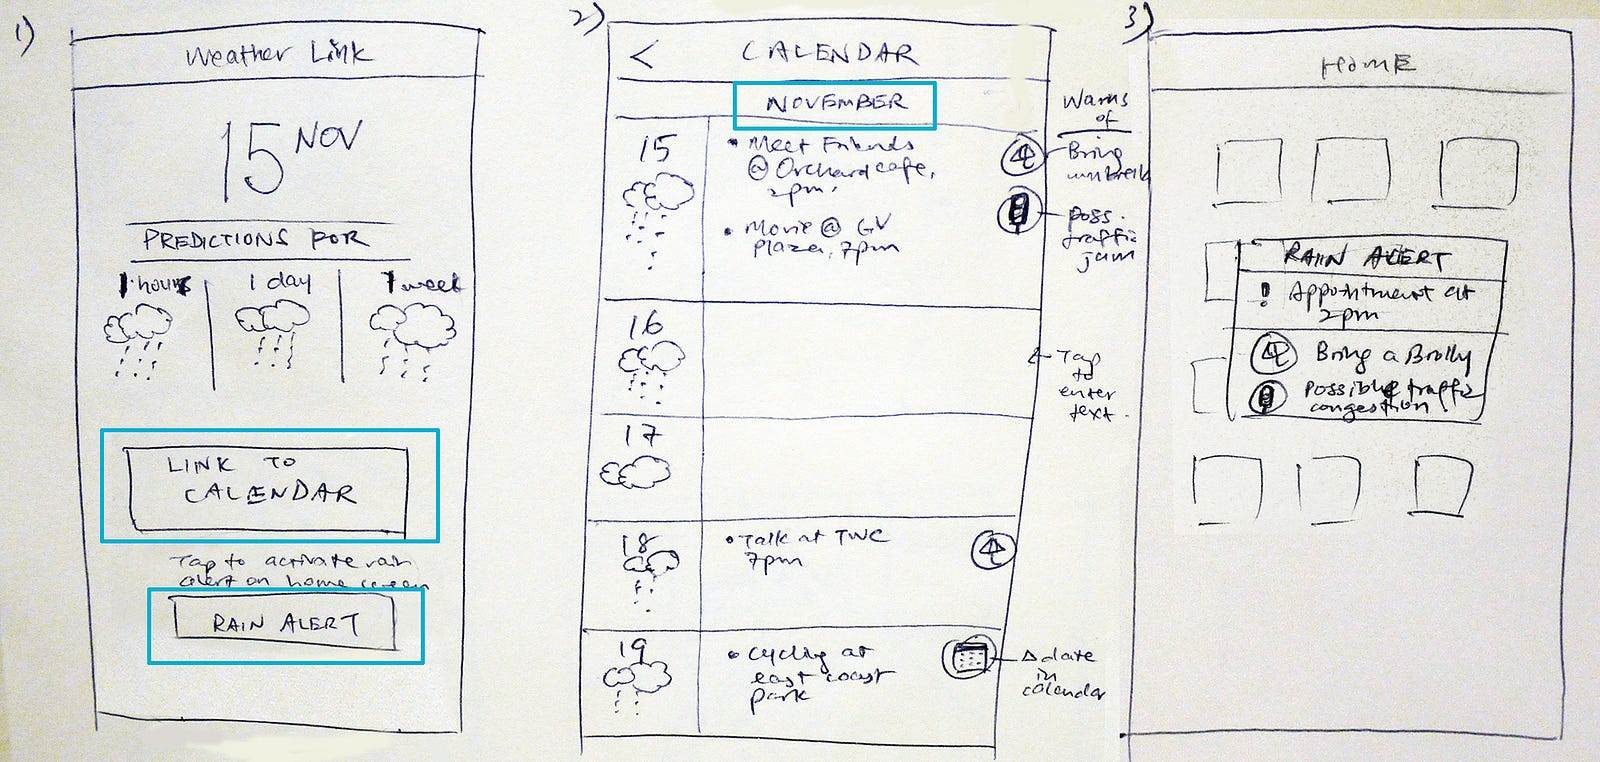 1)
Weather Link
15 NOV
PREDICTIONS FOR
1 hour
1 day
1 week
LINK TO
CALENDAR
Tap to activate rain
alert on home screen
RAIN ALERT
2)
<
CALENDAR
NOVEMBER
15
• Meet Friends
@ Orchard cafe,
2pm.
• Movie @ GV
Plaza, 7pm
16
17
18
• Talk at TWC
7pm
19
• Cycling at
east coast
park
Warns
of
Bring
umbrella
poss.
traffic
jam
Tap
to
enter
text.
Δ date
in
calendar
3)
HOME
RAIN ALERT
! Appointment at
2pm
Bring a Brolly
possible traffic
congestion.